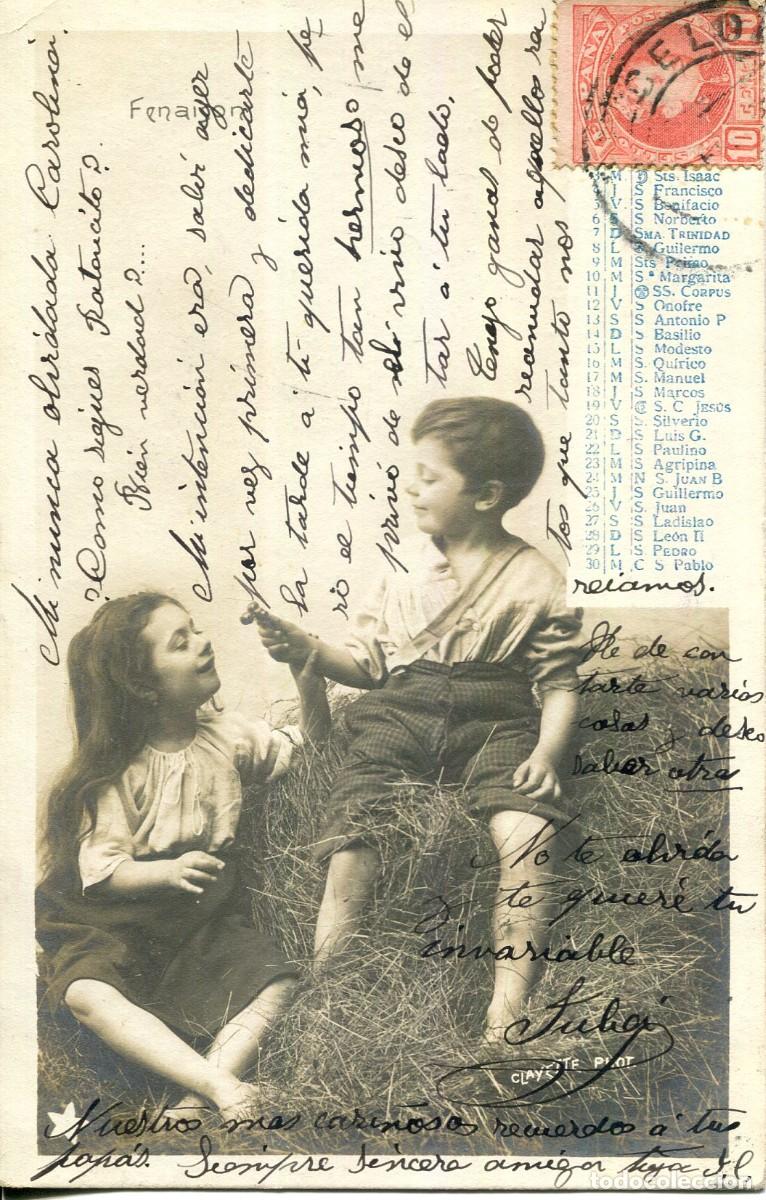 Mi nunca olvidada Carolina.
?Como sigues Ratoncito?
Bién verdad?....
Mi intención era, salir ayer
por vez primera y dedicarte
la tarde a ti querida mia, pe
ro el tiempo tan hermoso me
privó de mi vivo deseo de es
tar a tu lado.
Tengo ganas de poder
reanudar aquellos ra
tos que tanto nos
reiamos.
He de con
tarte varias
cosas y deseo
saber otras
No te olvida
y te quiere tu
invariable
Nuestros mas cariñosos recuerdos á tus
papás. Siempre sincera amiga tuya
ESPAÑA
10 10
M Sts. Isaac
4 J S Francisco
5 V S Bonifacio
6 S S Norberto
7 D SMA. TRINIDAD
8 L S Guillermo
9 M Sts
10 M Sª Margarita
11 J SS. CORPUS
12 V S Onofre
13 S S Antonio P
14 D S Basilio
15 L S Modesto
16 M S. Quírico
17 M S. Manuel
18 J S Marcos
19 V S. C JESÚS
20 S S. Silverio
21 D S Luis G.
22 L S Paulino
23 M S Agripina
24 M N S. JUAN B
25 J S Guillermo
26 V S. Juan
27 S S Ladislao
28 D S León II
29 L S. PEDRO
30 M C S Pablo
CLAYETTE PHOT
todocoleccion